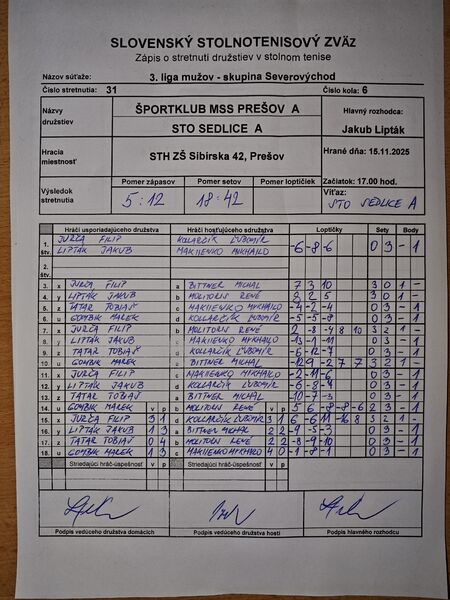 SLOVENSKÝ STOLNOTENISOVÝ ZVÄZ
Zápis o stretnutí družstiev v stolnom tenise
Názov súťaže: 3. liga mužov - skupina Severovýchod
Číslo stretnutia: 31 Číslo kola: 6
Názvy družstiev ŠPORTKLUB MSS PREŠOV A Hlavný rozhodca:
STO SEDLICE A Jakub Lipták
Hracia miestnosť STH ZŠ Sibírska 42, Prešov Hrané dňa: 15.11.2025
Začiatok: 17.00 hod.
Výsledok stretnutia Pomer zápasov Pomer setov Pomer loptičiek Víťaz:
5:12 18:42 STO SEDLICE A
Hráči usporiadajúceho družstva Hráči hosťujúceho sdružstva Loptičky Sety Body
1. štv. JURČA FILIP KOLARČÍK ĽUBOMÍR
LIPTÁK JAKUB MAKIIENKO MYKHAILO -6 -8 -6 0 3 - 1
2. štv.
3. x JURČA FILIP a BITTNER MICHAL 7 3 10 3 0 1 -
4. y LIPTÁK JAKUB b MOLITORIS RENÉ
5. z TATAR TOBIÁŠ c MAKIIENKO MYKHAILO -4 -2 -4 0 3 - 1
6. u GOMBIK MAREK d KOLLARČÍK ĽUBOMÍR -5 -5 -8 0 3 - 1
7. x JURČA FILIP b MOLITORIS RENÉ 2 -8 -4 8 10 3 2 1 -
8. y LIPTÁK JAKUB c MAKIIENKO MYKHAILO 0 3 - 1
9. z TATAR TOBIÁŠ d KOLLARČÍK ĽUBOMÍR -6 -12 -7 0 3 - 1
10. u GOMBIK MAREK a BITTNER MICHAL 3 2 1 -
11. x JURČA FILIP c MAKIIENKO MYKHAILO -2 -11 -6 0 3 - 1
12. y LIPTÁK JAKUB d KOLLARČÍK ĽUBOMÍR -6 -8 -9 0 3 - 1
13. z TATAR TOBIÁŠ a BITTNER MICHAL -10 -7 -3 0 3 - 1
14. u GOMBIK MAREK v p b MOLITORIS RENÉ v p 5 6 -8 -8 -6 2 3 - 1
15. x JURČA FILIP 3 1 d KOLLARČÍK ĽUBOMÍR 3 1 3 2 1 -
16. y LIPTÁK JAKUB 1 3 a BITTNER MICHAL 2 2 -9 -5 -3 0 3 - 1
17. z TATAR TOBIÁŠ 0 4 b MOLITORIS RENÉ 2 2 -8 -9 -10 0 3 - 1
18. u GOMBIK MAREK 1 3 c MAKIIENKO MYKHAILO 4 0 -1 -8 -1 0 3 - 1
Striedajúci hráč-úspešnosť v p Striedajúci hráč-úspešnosť v p
Podpis vedúceho družstva domácich Podpis vedúceho družstva hostí Podpis hlavného rozhodcu